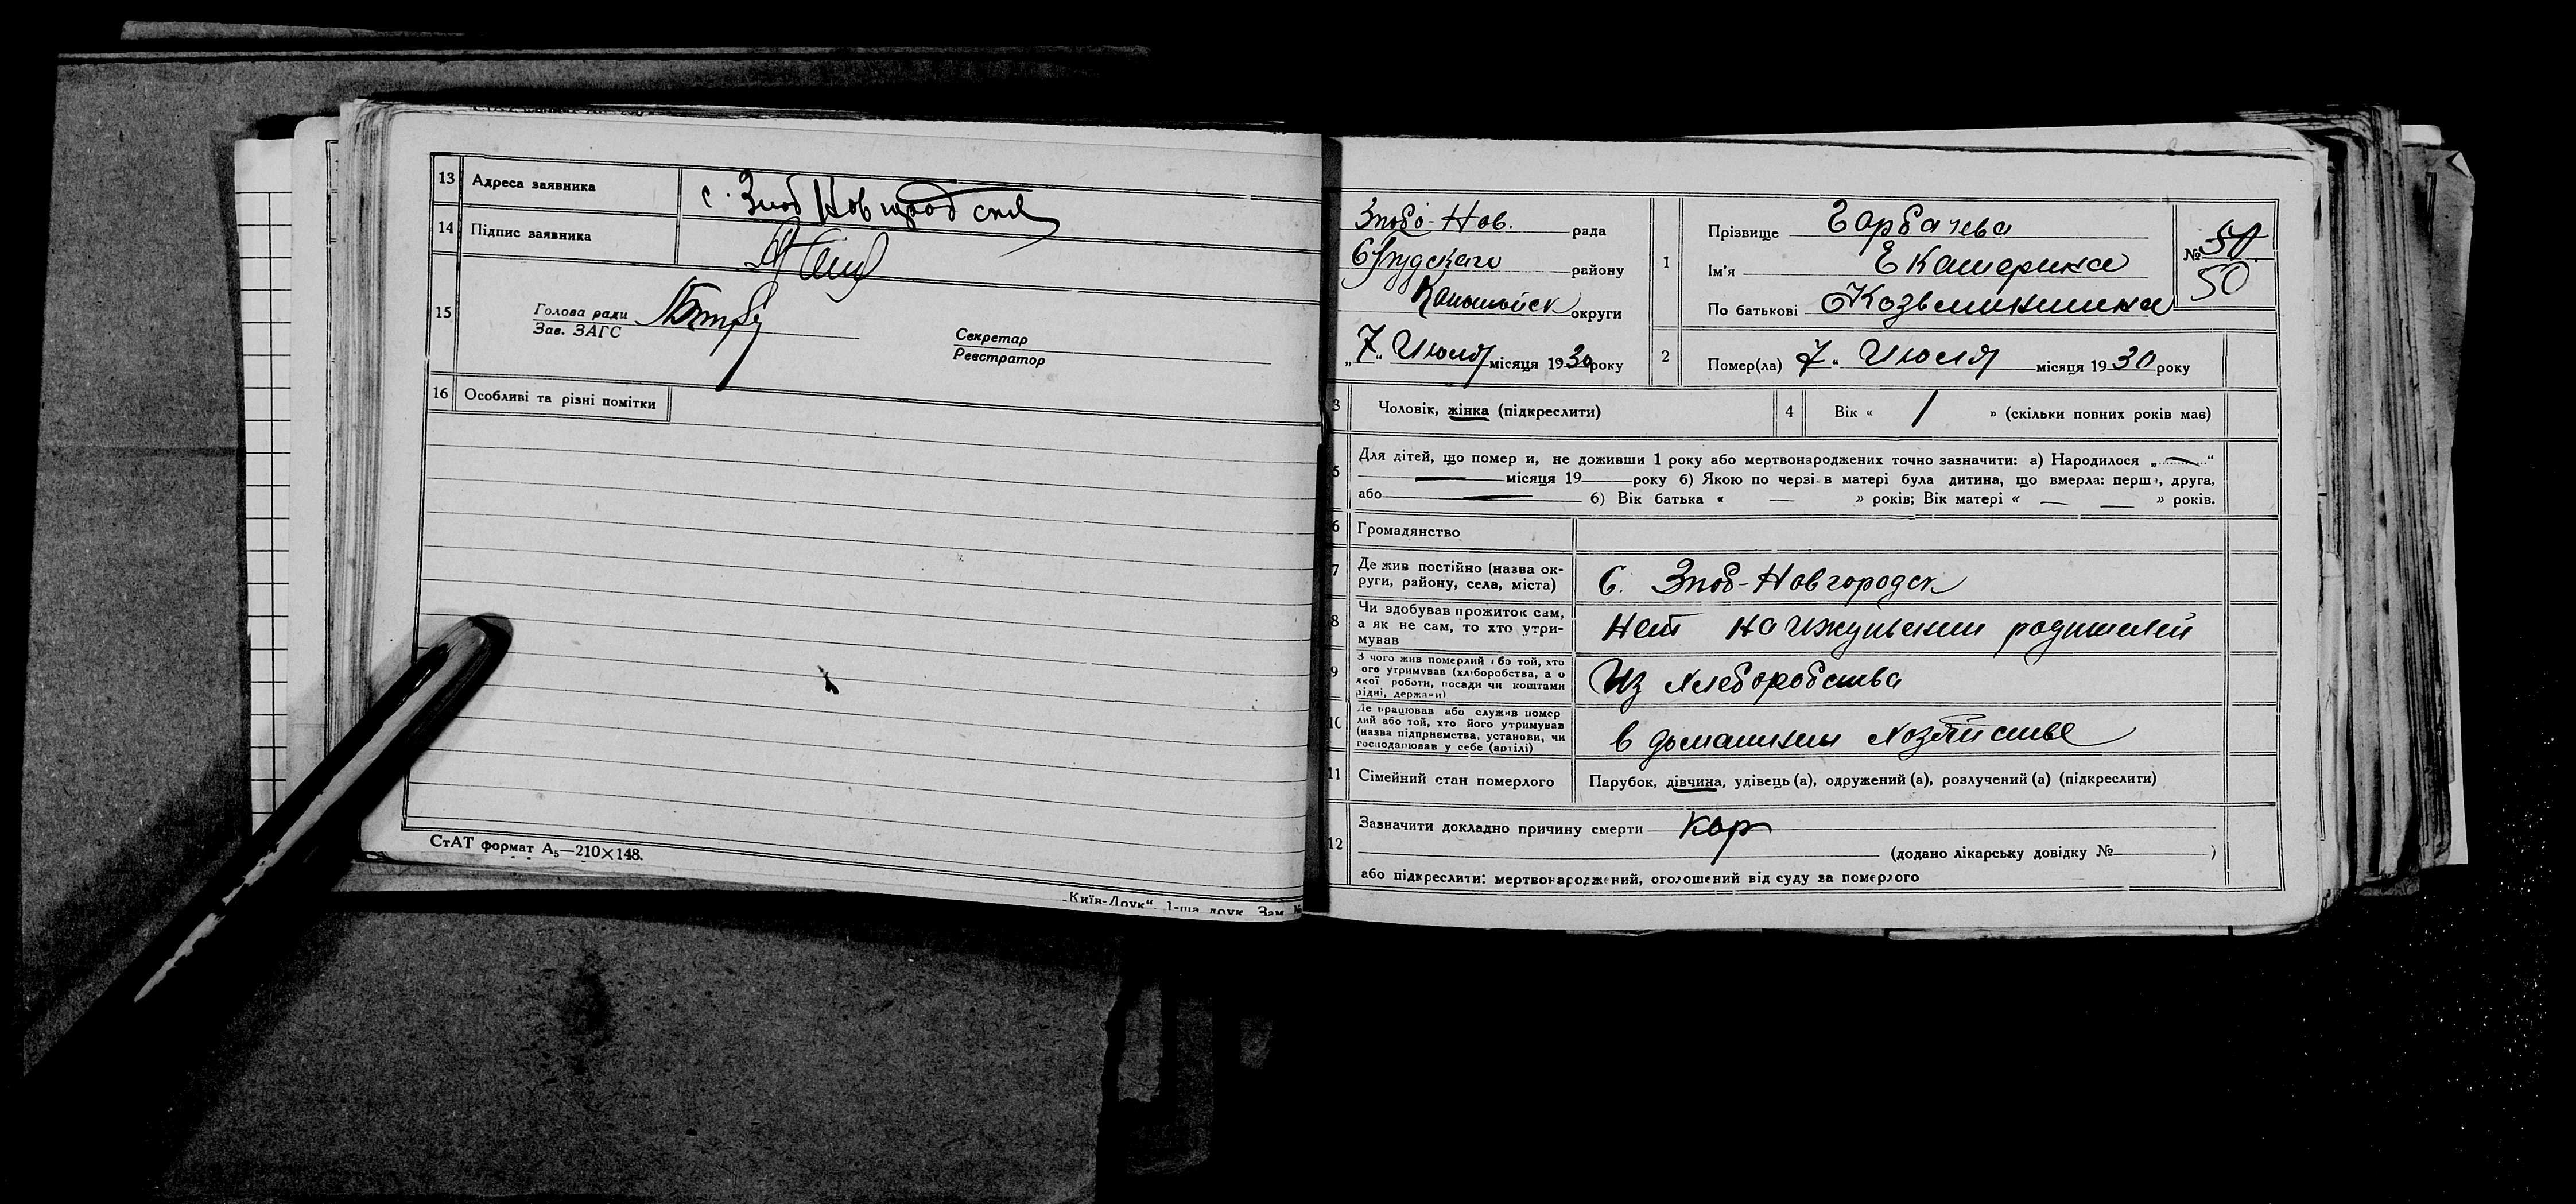 13 Адреса заявника с. Зноб Новгородска
14 Підпис заявника
15 Голова ради
Зав. ЗАГС
Секретар
Реєстратор
16 Особливі та різні помітки
СтАТ формат А₅—210×148.
„Київ-Друк“ 1-ша друк. Зам. №
Знобо-Нов. рада
району
округи
„7“ Июля місяця 1930 року
1 Прізвище Гарбачева
Ім'я Екатерина
По батькові Козьминишна
№ 50
50
2 Помер(ла) 7 “ Июля місяця 1930 року
3 Чоловік, жінка (підкреслити)
4 Вік « 1 » (скільки повних років має)
5 Для дітей, що померли, не доживши 1 року або мертвонароджених точно зазначити: а) Народилося „ — “
— місяця 19 — року б) Якою по черзі в матері була дитина, що вмерла: перша, друга,
або — б) Вік батька « — » років; Вік матері « — — » років.
6 Громадянство
7 Де жив постійно (назва ок-
руги, району, села, міста)
С. Зноб-Новгородск
8 Чи здобував прожиток сам,
а як не сам, то хто утри-
мував
Нет на иждивении родителей
9 З чого жив померлий або той, хто
його утримував (хліборобства, а о
якої роботи, посади чи коштами
рідні, держави)
Из хлеборобства
10 Де працював або служив помер
лий або той, хто його утримував
(назва підприємства, установи, чи
господарював у себе (артілі)
в домашнем хозяйстве
11 Сімейний стан померлого
Парубок, дівчина, удівець (а), одружений (а), розлучений (а) (підкреслити)
12 Зазначити докладно причину смерти Кор
(додано лікарську довідку № )
або підкреслити: мертвонароджений, оголошений від суду за померлого